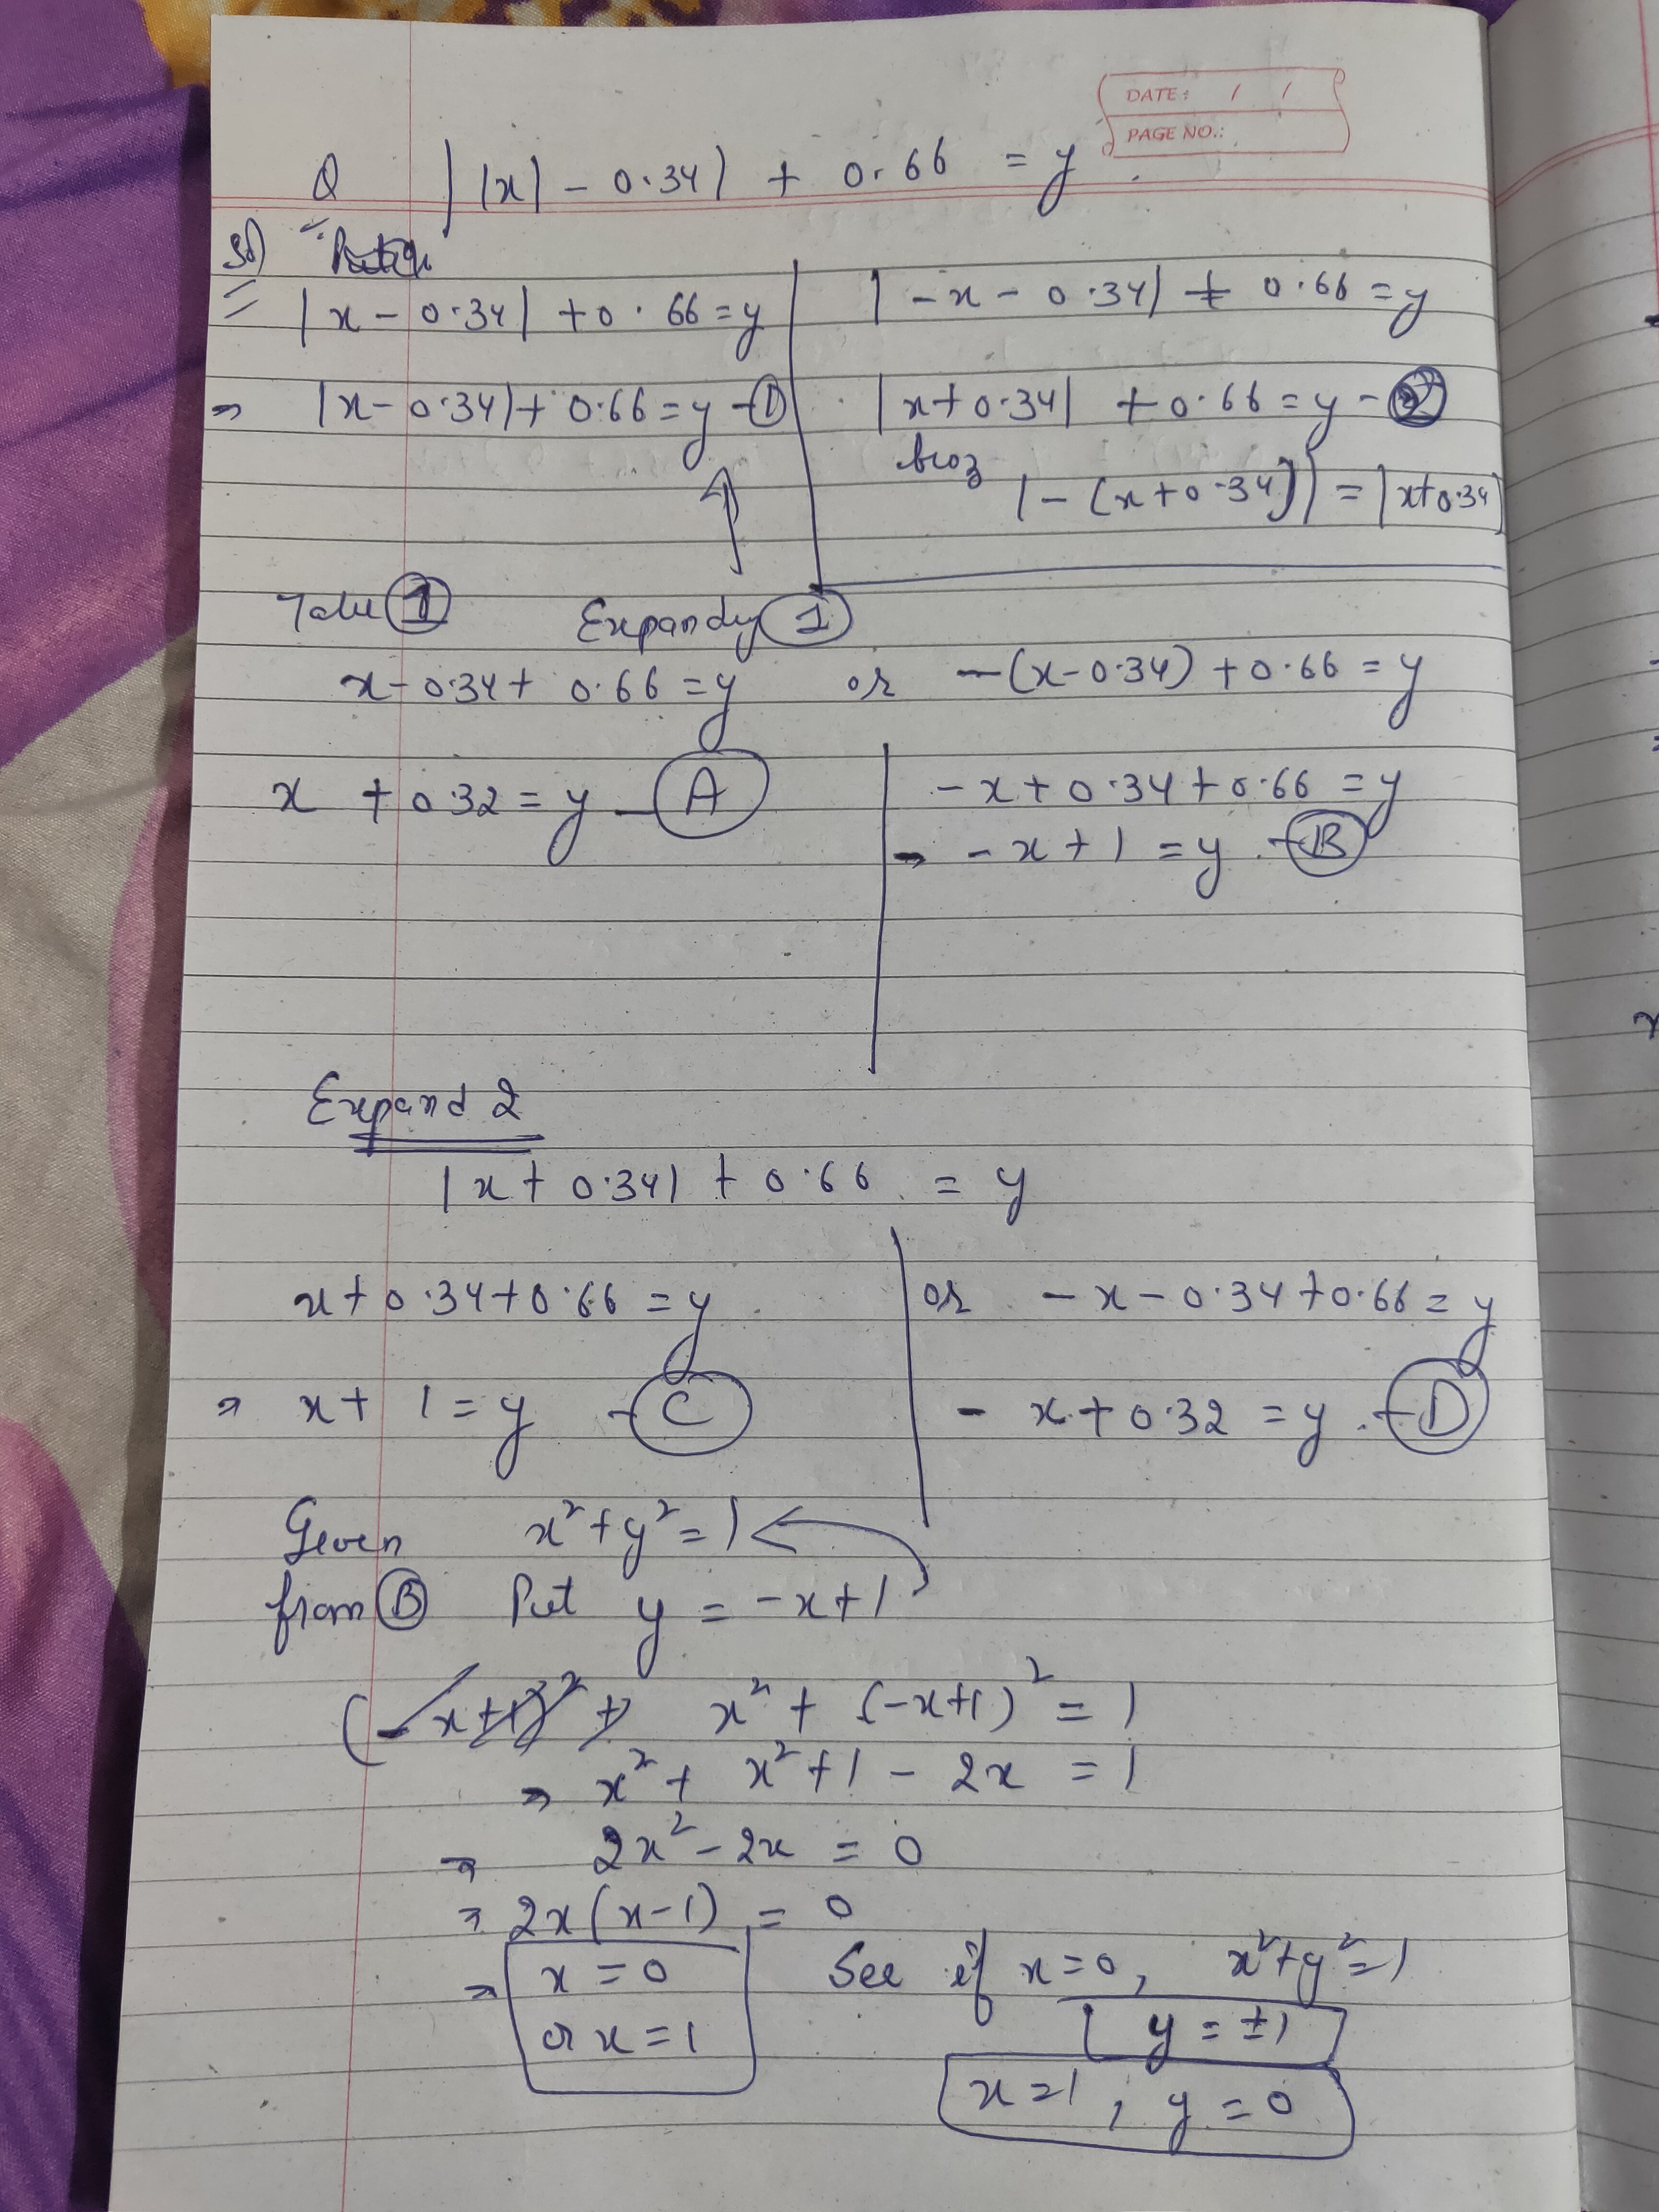 DATE: / /
PAGE NO.:
Q ||x| - 0.34| + 0.66 = y
Sol)
|x - 0.34| + 0.66 = y
|-x - 0.34| + 0.66 = y
⇒ |x - 0.34| + 0.66 = y - ①
|x + 0.34| + 0.66 = y - ②
|-(x + 0.34)| = |x + 0.34|
Take ① Expandy ①
x - 0.34 + 0.66 = y or -(x - 0.34) + 0.66 = y
x + 0.32 = y - Ⓐ
-x + 0.34 + 0.66 = y
⇒ -x + 1 = y - Ⓑ
Expand 2
|x + 0.34| + 0.66 = y
x + 0.34 + 0.66 = y or -x - 0.34 + 0.66 = y
⇒ x + 1 = y - Ⓒ
-x + 0.32 = y - Ⓓ
Geven x² + y² = 1
from Ⓑ Put y = -x + 1
x² + (-x+1)² = 1
⇒ x² + x² + 1 - 2x = 1
⇒ 2x² - 2x = 0
⇒ 2x(x-1) = 0
⇒ x = 0
or x = 1
See if x = 0, x² + y² = 1
y = ±1
x = 1, y = 0